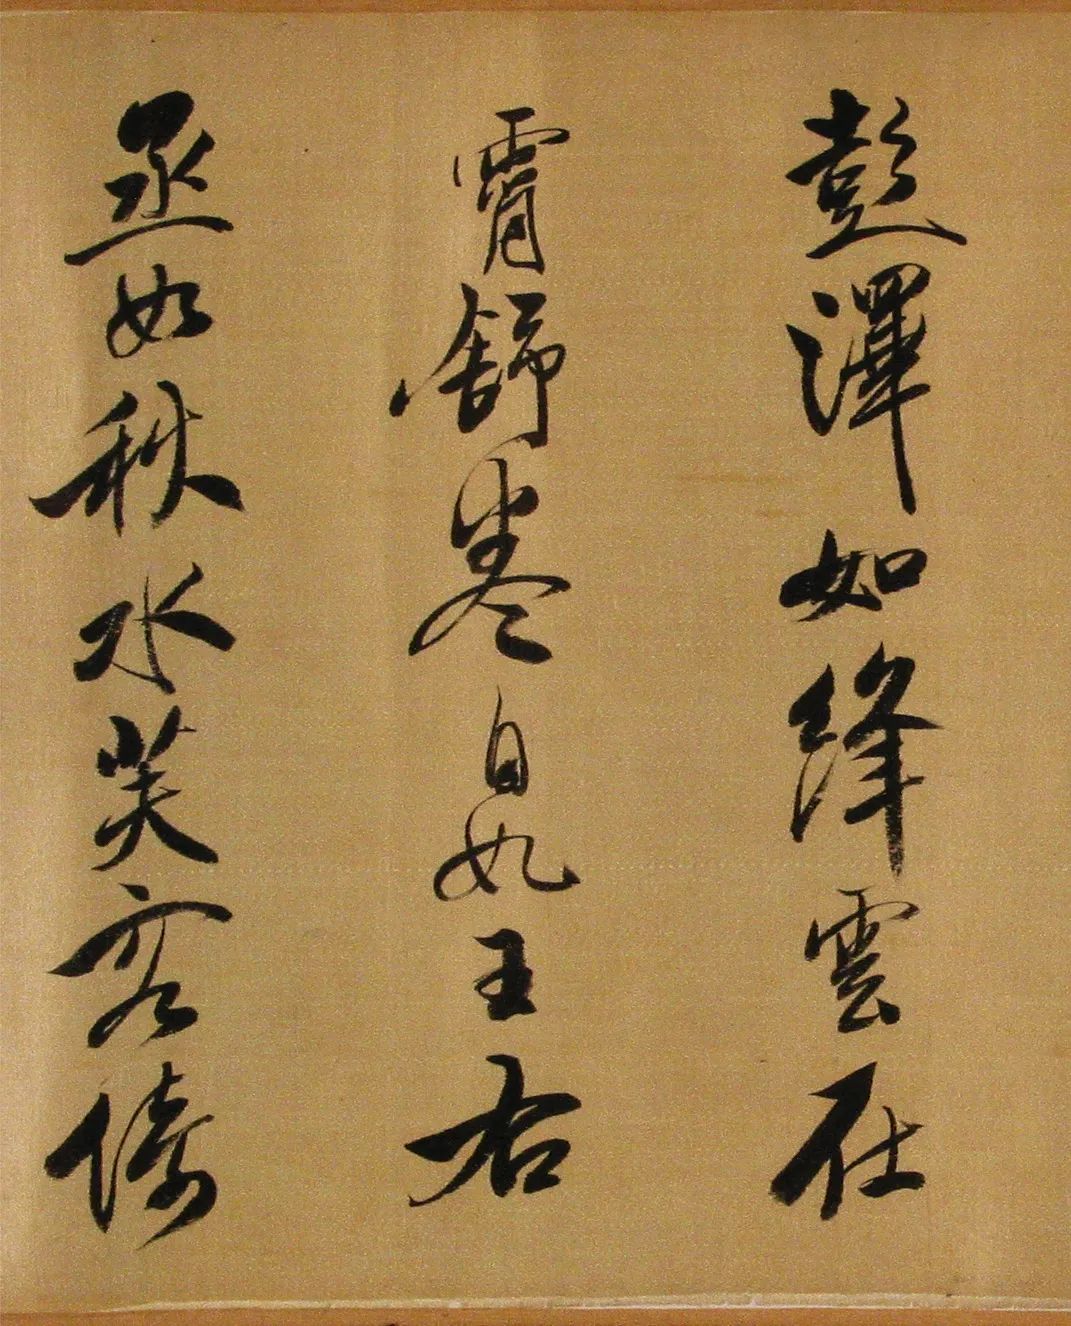 彭澤如絳雲在
霄舒卷自如王右
丞如秋水芙蓉倚